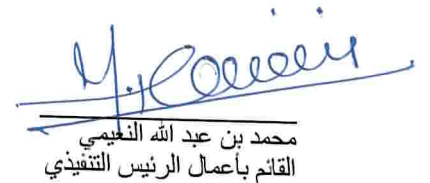 محمد بن عبد الله النعيمي
القائم بأعمال الرئيس التنفيذي